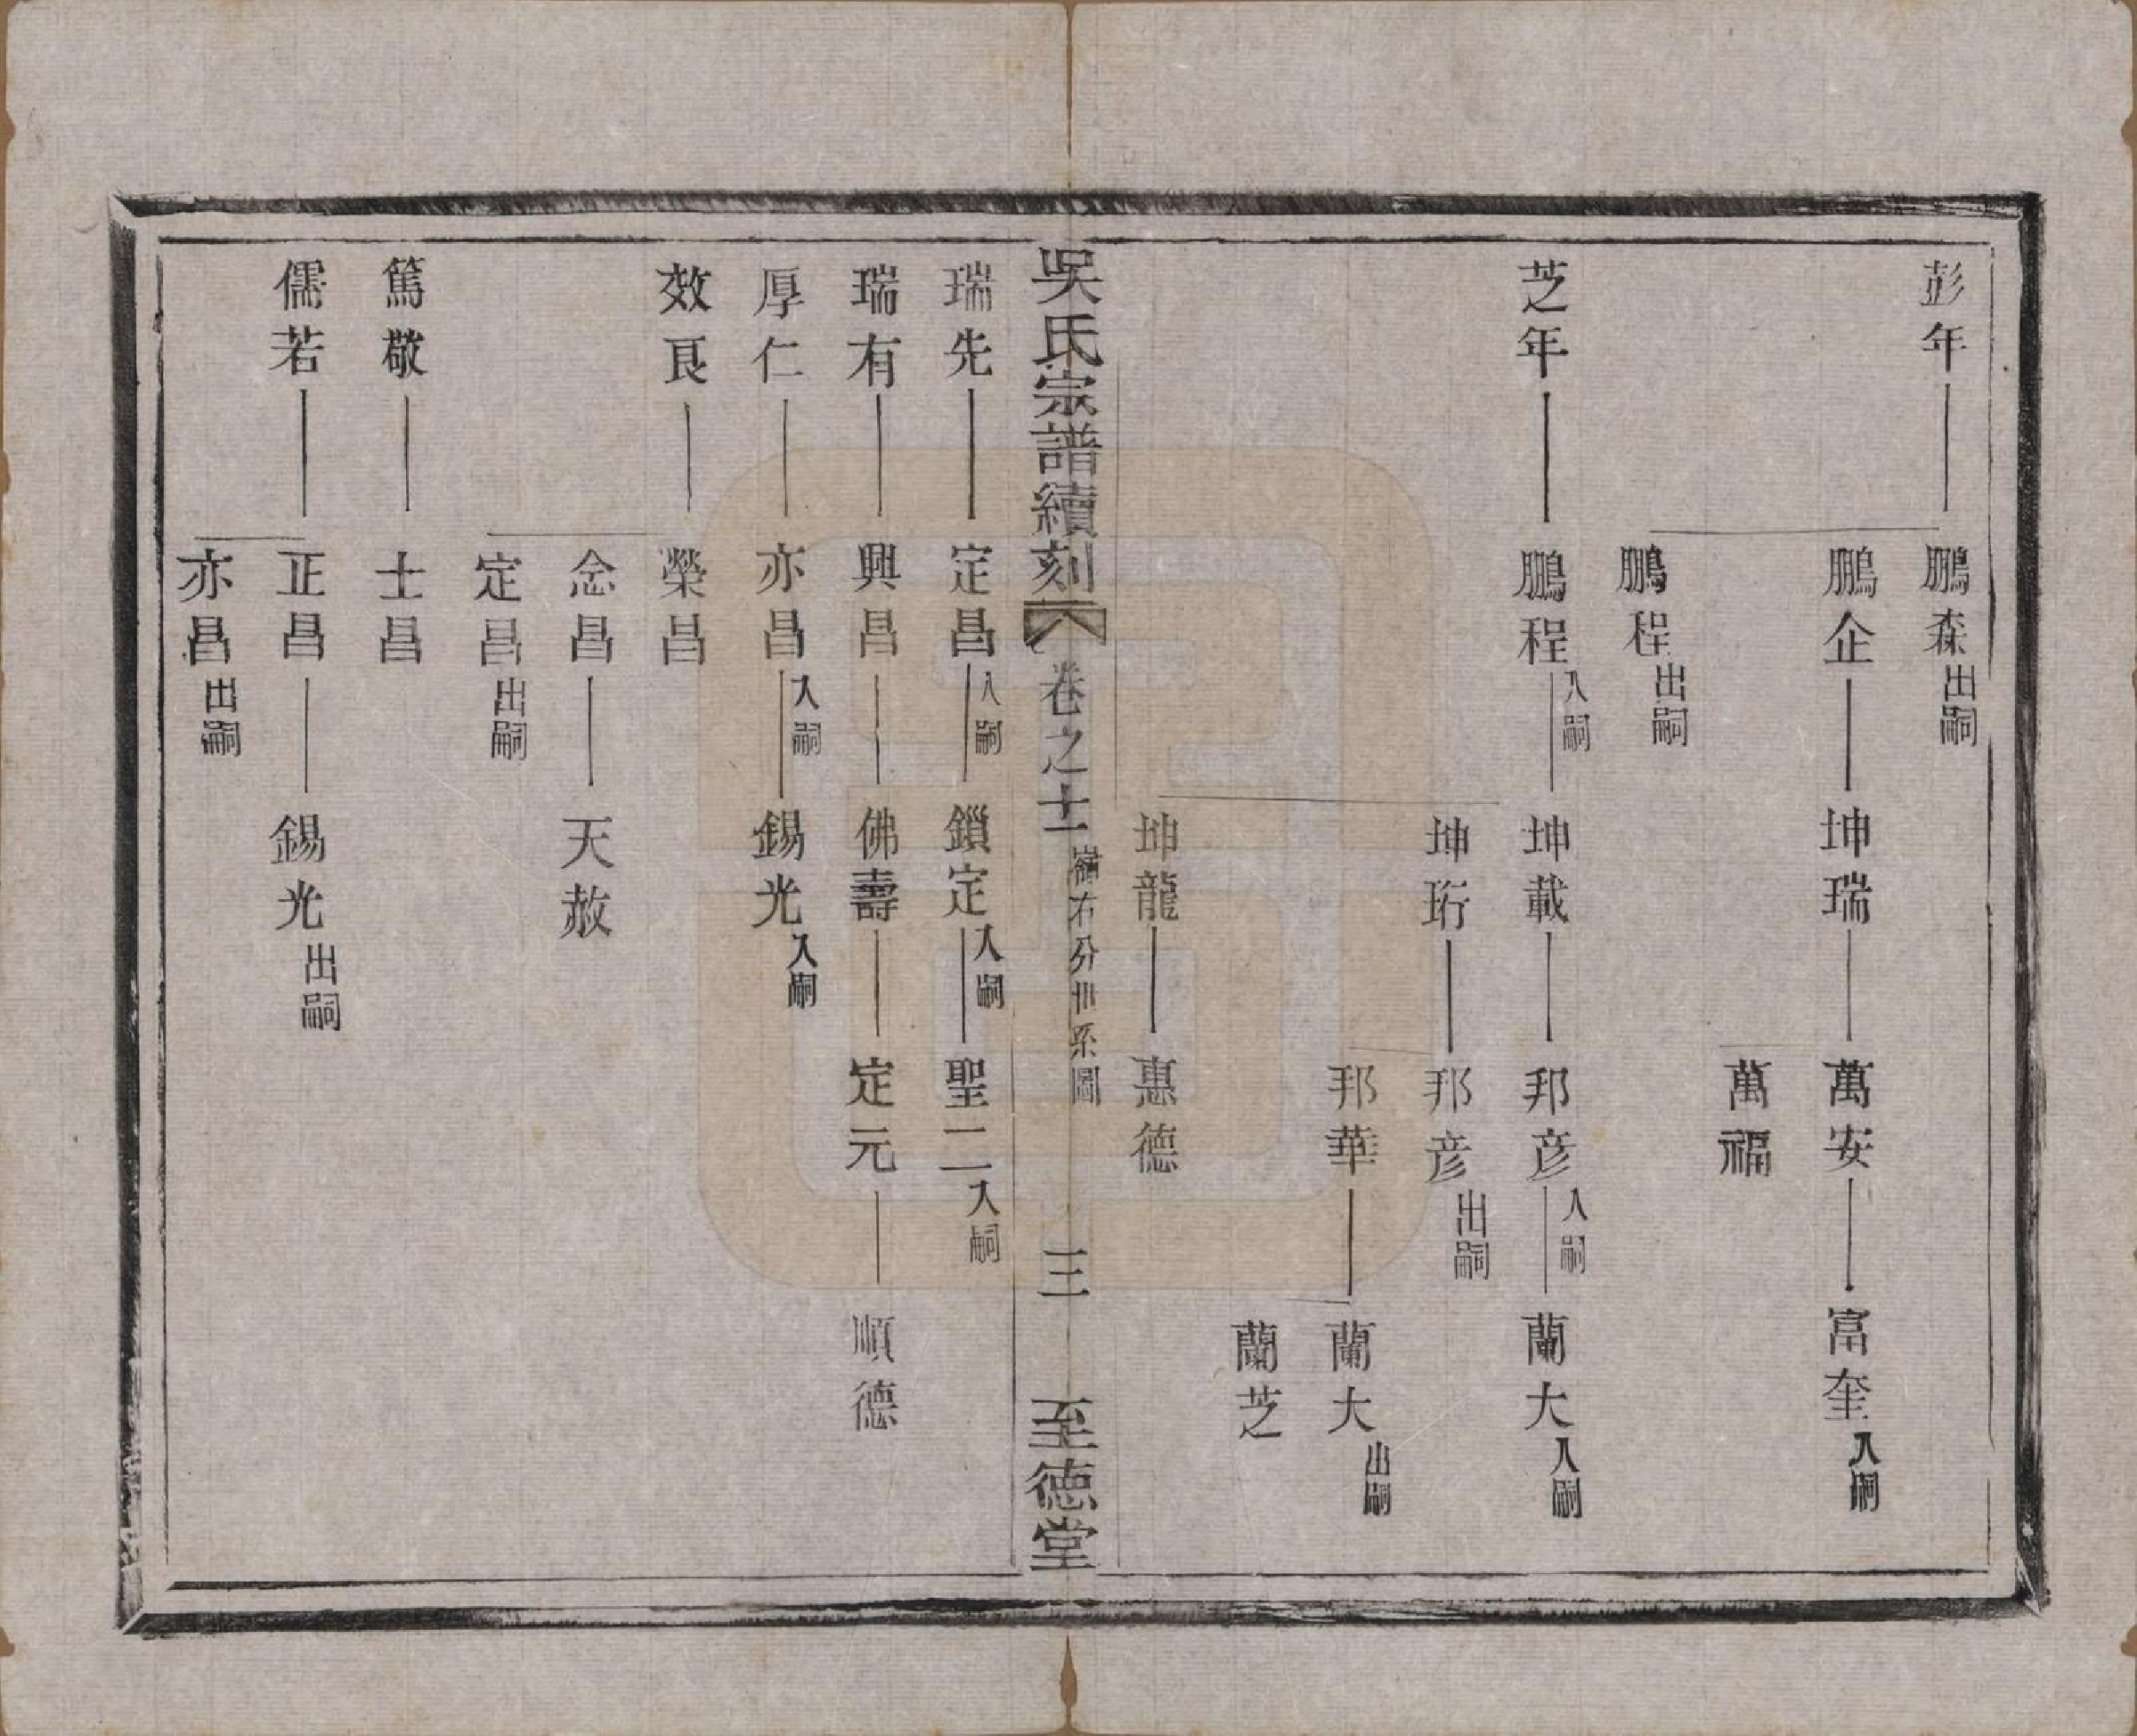 彭年 鵬森出嗣
鵬企 坤瑞 萬安 富奎入嗣
萬福
鵬程出嗣
芝年 鵬程入嗣 坤載 邦彦入嗣 蘭大入嗣
坤珩 邦彦出嗣
邦華 蘭大出嗣
蘭芝
坤龍 惠德
吳氏宗譜續刻 卷之十一 嶺右分卅系圖 三 至德堂
瑞先 定昌入嗣 鎖定入嗣 聖二入嗣
瑞有 興昌 佛壽 定元 順德
厚仁 亦昌入嗣 錫光入嗣
效良 榮昌
念昌 天赦
定昌出嗣
篤敬 士昌
儒若 正昌 錫光出嗣
亦昌出嗣